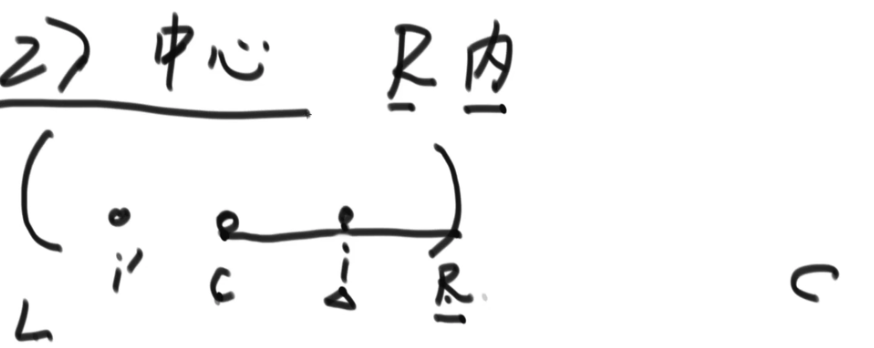 2) 中心 R内
( )
i' C i R C
L